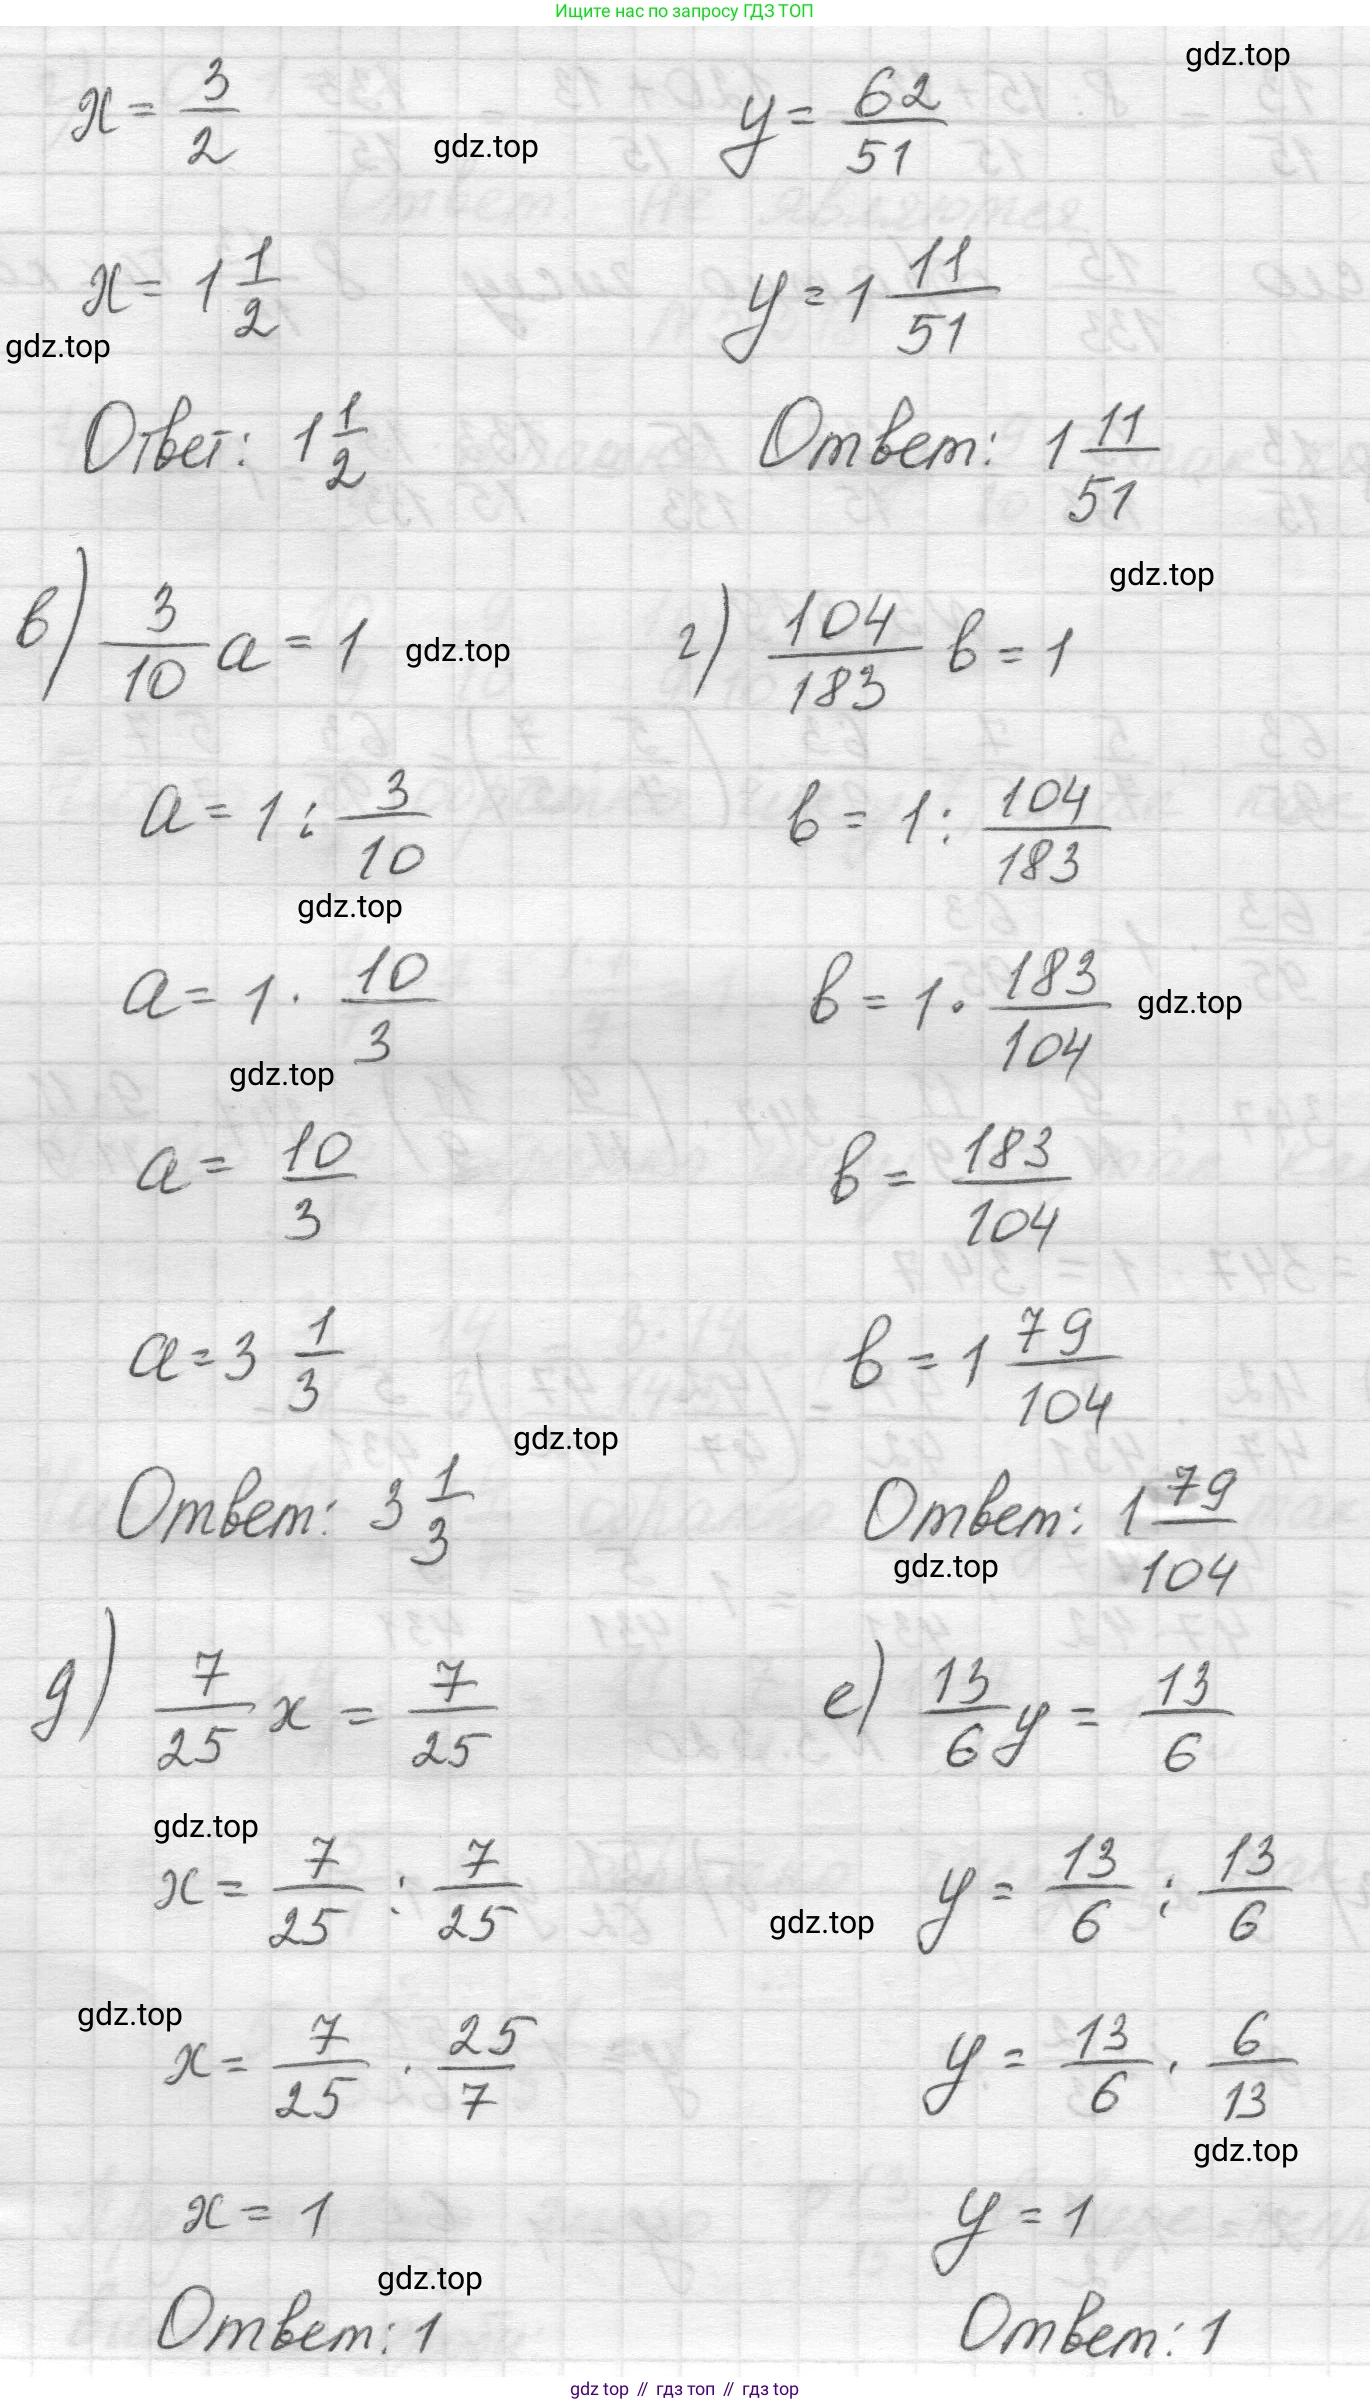 Ищите нас по запросу ГДЗ ТОП
gdz.top
x = 3/2
y = 62/51
gdz.top
x = 1 1/2
y = 1 11/51
gdz.top
Ответ: 1 1/2
Ответ: 1 11/51
gdz.top
в) 3/10 a = 1
gdz.top
г) 104/183 b = 1
a = 1 : 3/10
b = 1 : 104/183
gdz.top
a = 1 · 10/3
b = 1 · 183/104
gdz.top
gdz.top
a = 10/3
b = 183/104
a = 3 1/3
b = 1 79/104
gdz.top
Ответ: 3 1/3
Ответ: 1 79/104
gdz.top
д) 7/25 x = 7/25
е) 13/6 y = 13/6
gdz.top
x = 7/25 : 7/25
y = 13/6 : 13/6
gdz.top
gdz.top
x = 7/25 · 25/7
y = 13/6 · 6/13
gdz.top
x = 1
y = 1
gdz.top
Ответ: 1
Ответ: 1
gdz top // гдз топ // гдз top